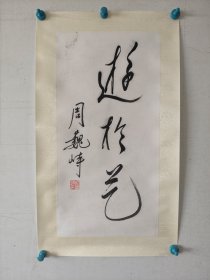 遊於艺
周巍峙